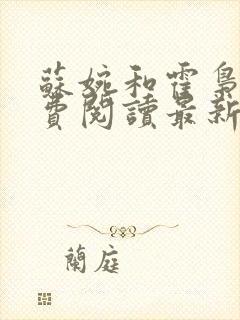 蘇婉和霍梟
費閱讀最新
蘭庭